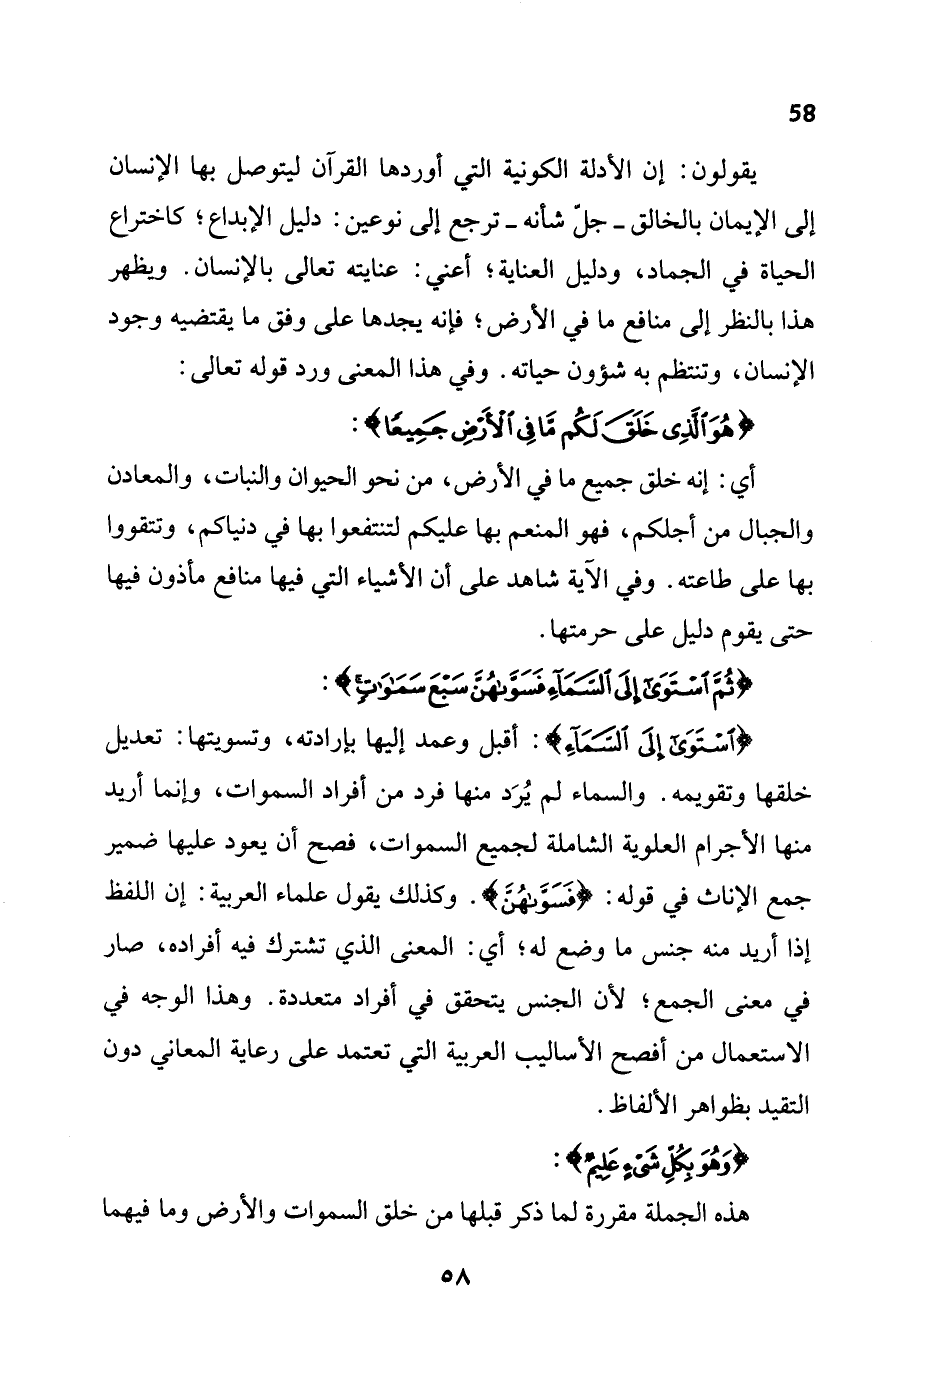 58
يقولون: إن الأدلة الكونية التي أوردها القرآن ليتوصل بها الإنسان
إلى الإيمان بالخالق ـ جلّ شأنه ـ ترجع إلى نوعين: دليل الإبداع؛ كاختراع
الحياة في الجماد، ودليل العناية؛ أعني: عنايته تعالى بالإنسان. ويظهر
هذا بالنظر إلى منافع ما في الأرض؛ فإنه يجدها على وفق ما يقتضيه وجود
الإنسان، وتنتظم به شؤون حياته. وفي هذا المعنى ورد قوله تعالى:
﴿هُوَ ٱلَّذِى خَلَقَ لَكُم مَّا فِى ٱلْأَرْضِ جَمِيعًا﴾:
أي: إنه خلق جميع ما في الأرض، من نحو الحيوان والنبات، والمعادن
والجبال من أجلكم، فهو المنعم بها عليكم لتنتفعوا بها في دنياكم، وتتقووا
بها على طاعته. وفي الآية شاهد على أن الأشياء التي فيها منافع مأذون فيها
حتى يقوم دليل على حرمتها.
﴿ثُمَّ ٱسْتَوَىٰٓ إِلَى ٱلسَّمَآءِ فَسَوَّىٰهُنَّ سَبْعَ سَمَٰوَٰتٍۚ﴾:
﴿ٱسْتَوَىٰٓ إِلَى ٱلسَّمَآءِ﴾: أقبل وعمد إليها بإرادته، وتسويتها: تعديل
خلقها وتقويمه. والسماء لم يُرَد منها فرد من أفراد السموات، وإنما أريد
منها الأجرام العلوية الشاملة لجميع السموات، فصح أن يعود عليها ضمير
جمع الإناث في قوله: ﴿فَسَوَّىٰهُنَّ﴾. وكذلك يقول علماء العربية: إن اللفظ
إذا أريد منه جنس ما وضع له؛ أي: المعنى الذي تشترك فيه أفراده، صار
في معنى الجمع؛ لأن الجنس يتحقق في أفراد متعددة. وهذا الوجه في
الاستعمال من أفصح الأساليب العربية التي تعتمد على رعاية المعاني دون
التقيد بظواهر الألفاظ.
﴿وَهُوَ بِكُلِّ شَىْءٍ عَلِيمٌ﴾:
هذه الجملة مقررة لما ذكر قبلها من خلق السموات والأرض وما فيهما
٥٨